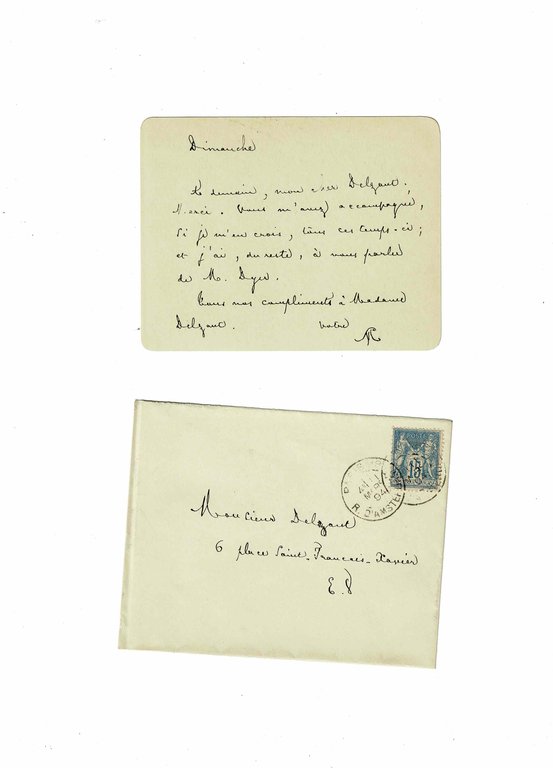 Dimanche
À demain, mon cher Delzant.
Merci. Vous m'avez accompagné,
si je m'en crois, tous ces temps-ci;
et j'ai, du reste, à vous parler
de M. Dyer.
Tous nos compliments à Madame
Delzant. Votre
SM
15
MR
94
R. D'AMSTER
Monsieur Delzant
6 place Saint-François-Xavier
E.V